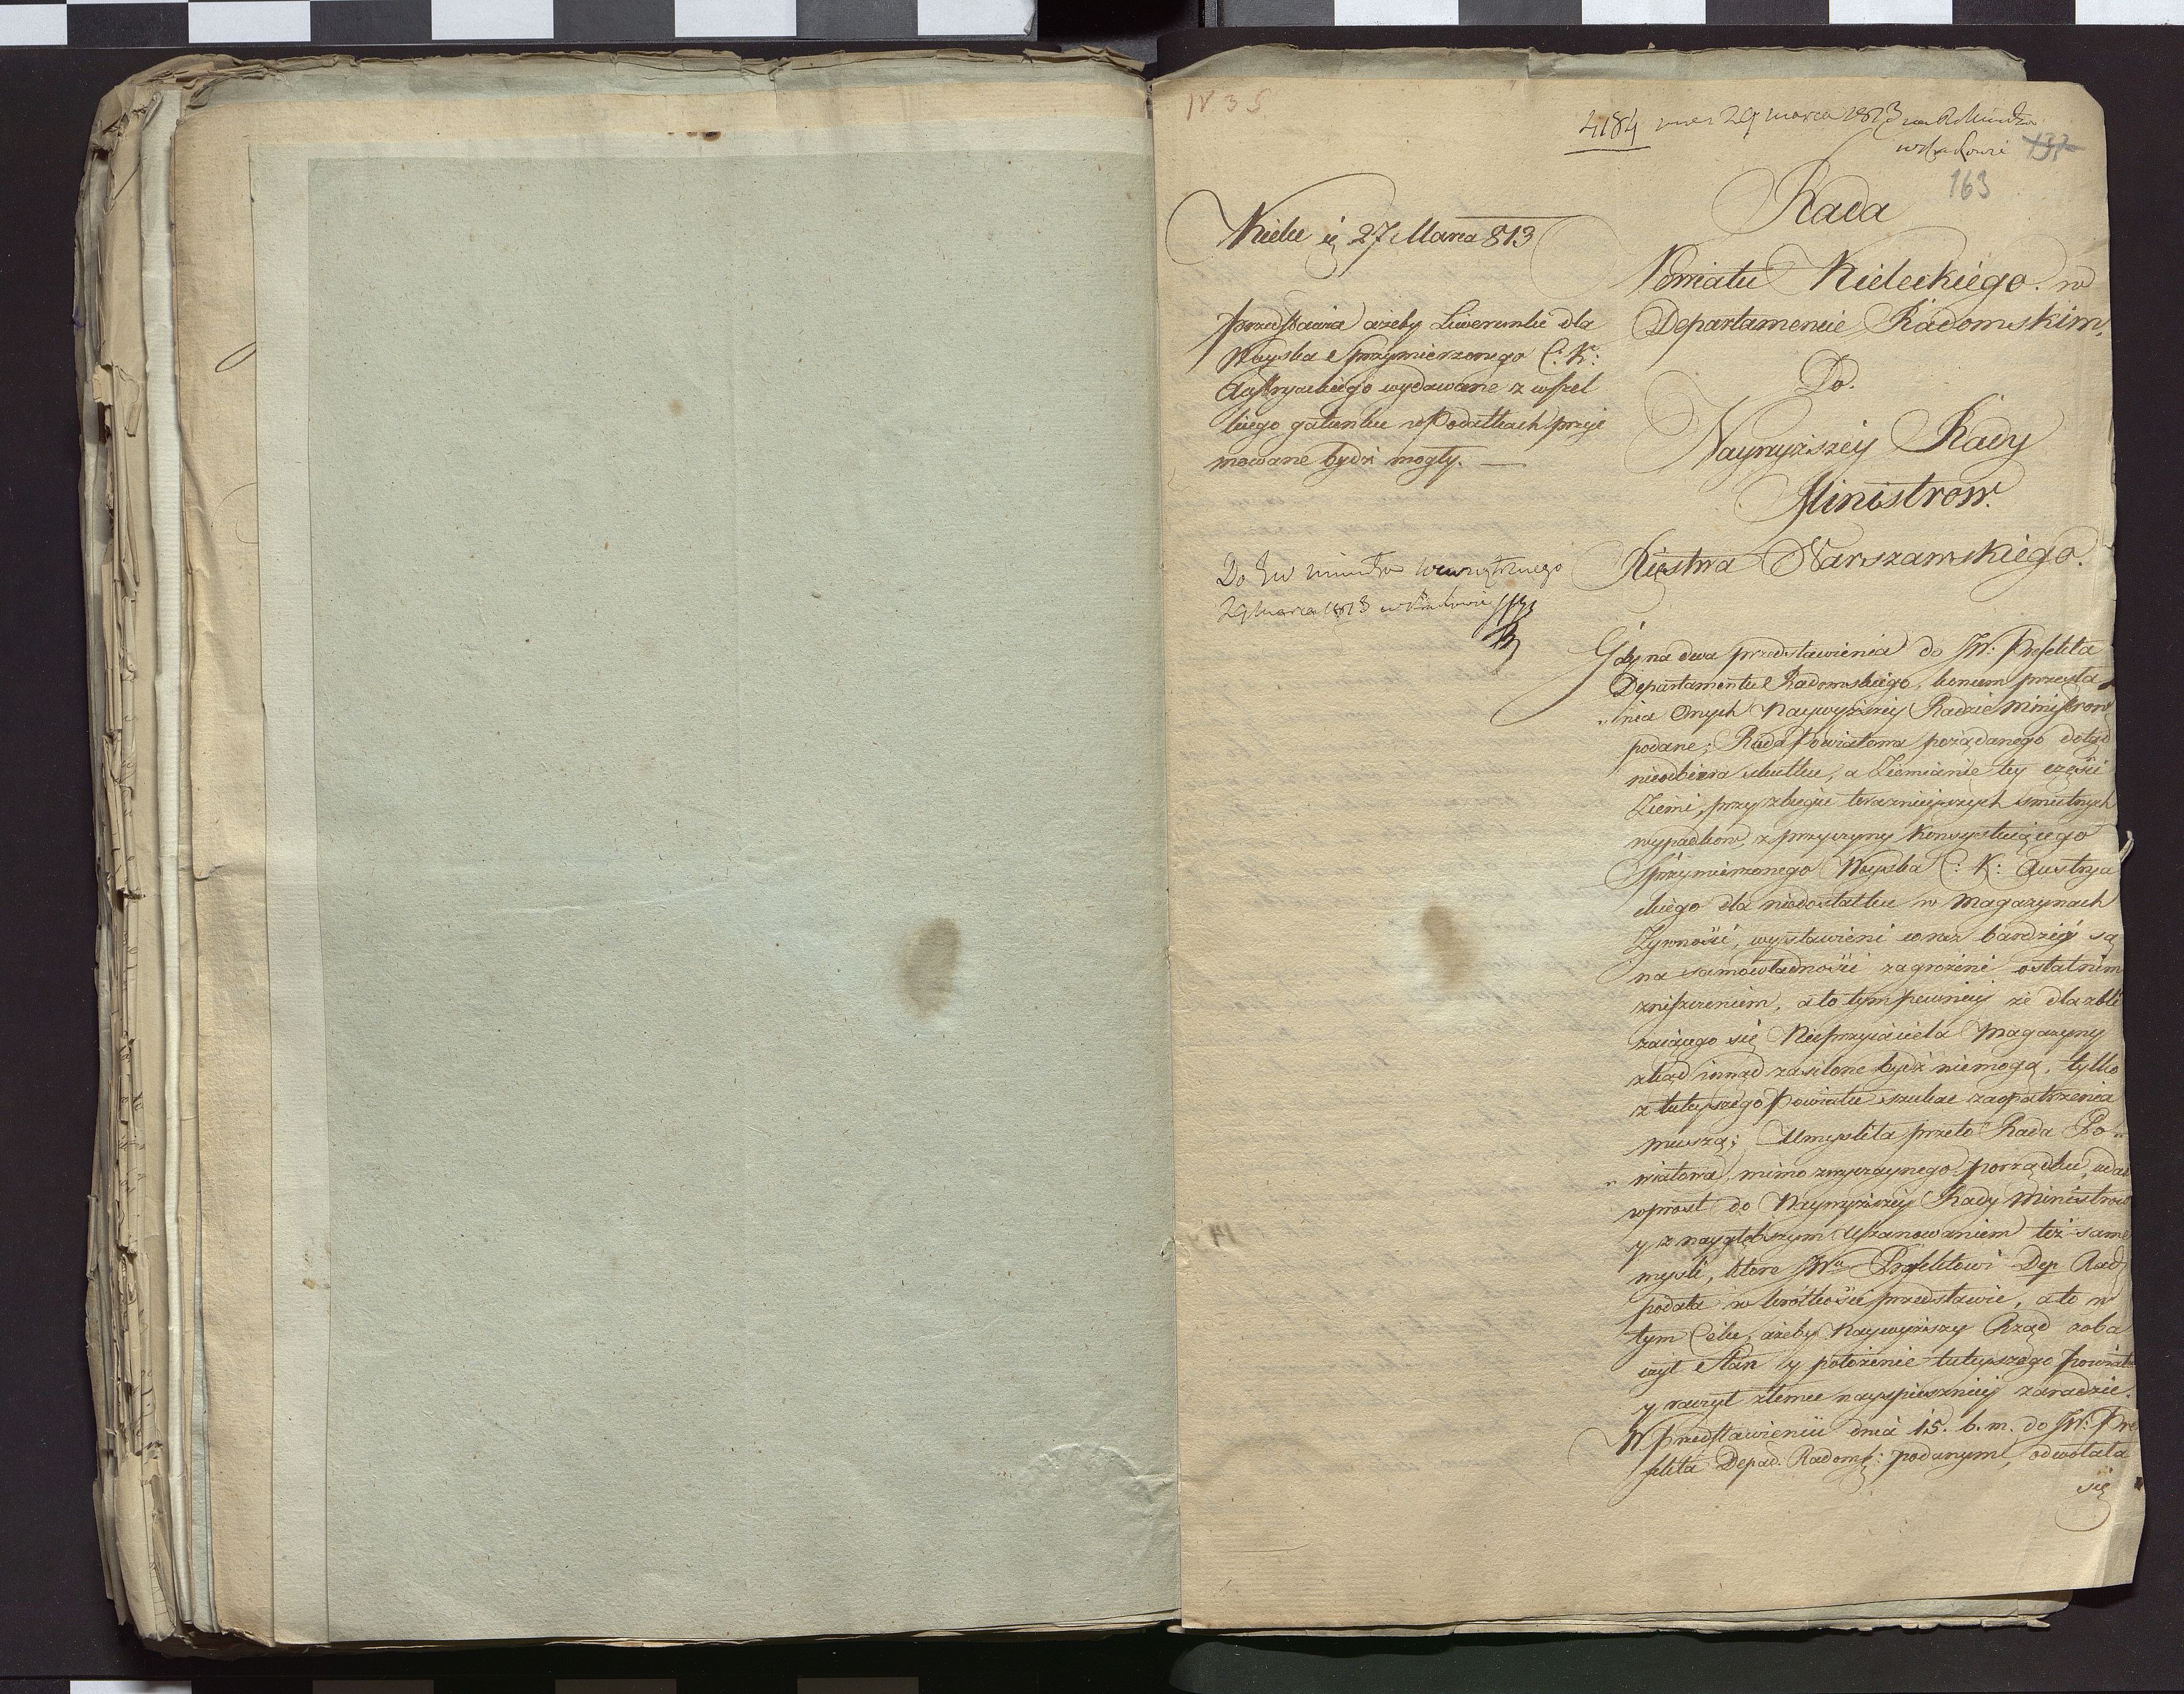 1835
4184 29 marca 1813
w Krakowie 137
163
Kielce 27 Marca 813
przedstawia ażeby Liwerunki dla
Woyska Sprzymierzonego C: K:
Austryackiego wydawane z wszel
kiego gatunku w Podatkach przyi
mowane bydź mogły. —
Do JW ministra wewnętrznego
29 marca 1813 w Krakowie
Rada
Powiatu Kieleckiego w
Departamencie Radomskim,
Do.
Naywyższey Rady
Ministrow.
Xięstwa Warszawskiego.
Gdy na dwa przedstawienia do JW: Prefekta
Departamentu Radomskiego, koncem przesła
„nia Onych Naywyższey Radzie Ministrow
podane; Rada Powiatowa pożądanego dotąd
nieodbiera skutku, a Ziemianie tey części
Ziemi, przy zbiegu teraznieyszych smutnych
wypadkow, z przyczyny Konsystuiącego
Sprzymierzonego Woyska C: K: Austrya
ckiego dla niedostatku w Magazynach
Żywności, wystawieni coraz bardziey są
na samowładności zagrożeni ostatnim
zniszczeniem, a to tym pewniey że dla zbli
żaiącego się Nieprzyiaciela Magazyny
zkąd inąd zasilone bydź niemogą, tylko
z tuteyszego Powiatu szukać zaopatrzenia
muszą; Umyśliła przeto Rada Po„
„wiatowa, mimo zwyczaynego porządku, udać
wprost do Naywyższey Rady Ministrow
y z naygłębszym Uszanowaniem też same
myśli, które JWu Prefektowi Dep Rad
podała w krótkości przedstawić, a to w
tym Celu, ażeby Naywyższy Rząd zoba
czył Stan y położenie tuteyszego Powiatu
y raczył złemu nayspieszniey zaradzić.
W Przedstawieniu dnia 15. b. m. do JW: Pre
fekta Depar. Radoms: podanym, odwołała
się